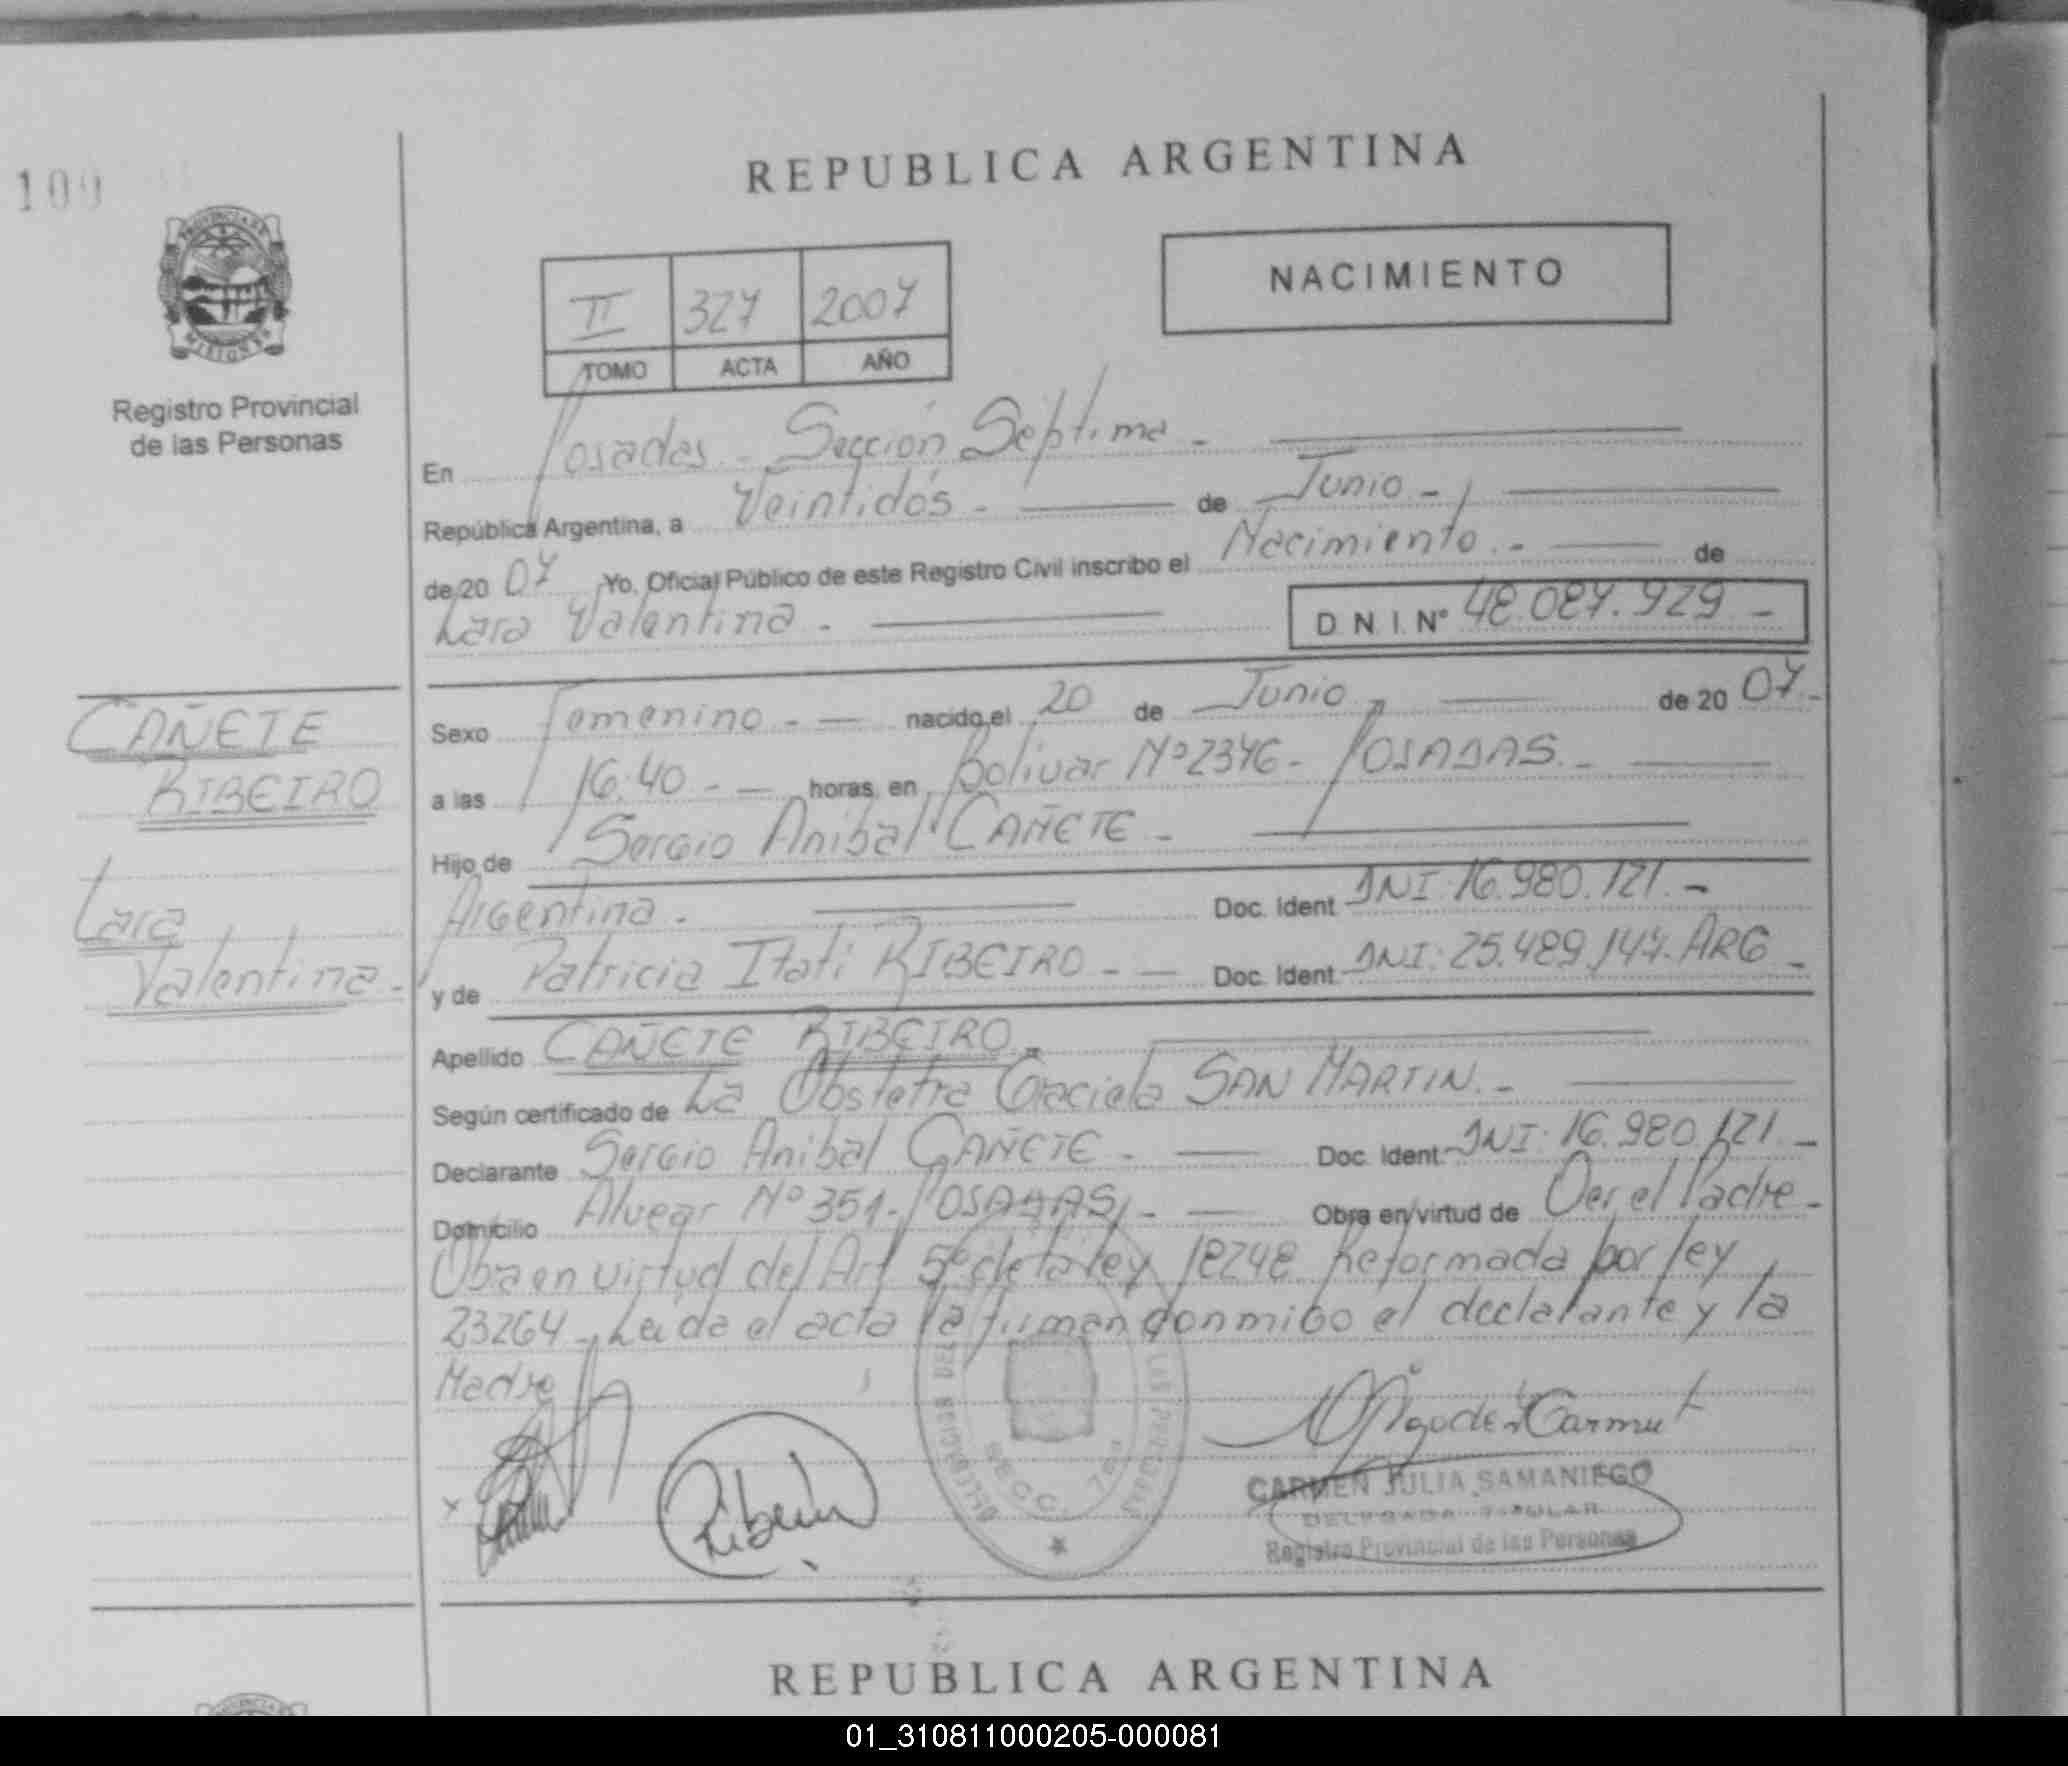 100
REPUBLICA ARGENTINA
NACIMIENTO
II 327 2007
TOMO ACTA AÑO
PROVINCIA DE
MISIONES
Registro Provincial
de las Personas
En Posadas - Sección Séptima -
República Argentina, a Veintidós - de Junio -
de 20 07 Yo, Oficial Público de este Registro Civil inscribo el Nacimiento. - de
Lara Valentina - D.N.I. Nº 48.087.929 -
CAÑETE
RIBEIRO
Lara
Valentina -
Sexo Femenino - nacido el 20 de Junio de 20 07 -
a las 16:40 - horas, en Bolivar Nº 2376 - POSADAS. -
Hijo de Sergio Anibal CAÑETE -
Argentina. Doc. Ident. DNI: 16.980.121. -
y de Patricia Itati RIBEIRO - Doc. Ident. DNI: 25.489.147. ARG -
Apellido CAÑETE RIBEIRO -
Según certificado de La Obstetra Graciela SAN MARTIN. -
Declarante Sergio Anibal CAÑETE - Doc. Ident. DNI: 16.980.121. -
Domicilio Alvear Nº 351 - POSADAS, - Obra en virtud de Ser el Padre -
Obra en virtud del Art 5º de la ley 18248 Reformada por ley
23264 - Leida el acta la firman conmigo el declarante y la
Madre
Ribeiro
CARMEN JULIA SAMANIEGO
DELEGADA TITULAR
Registro Provincial de las Personas
SECC. 7ma
REPUBLICA ARGENTINA
01_310811000205-000081